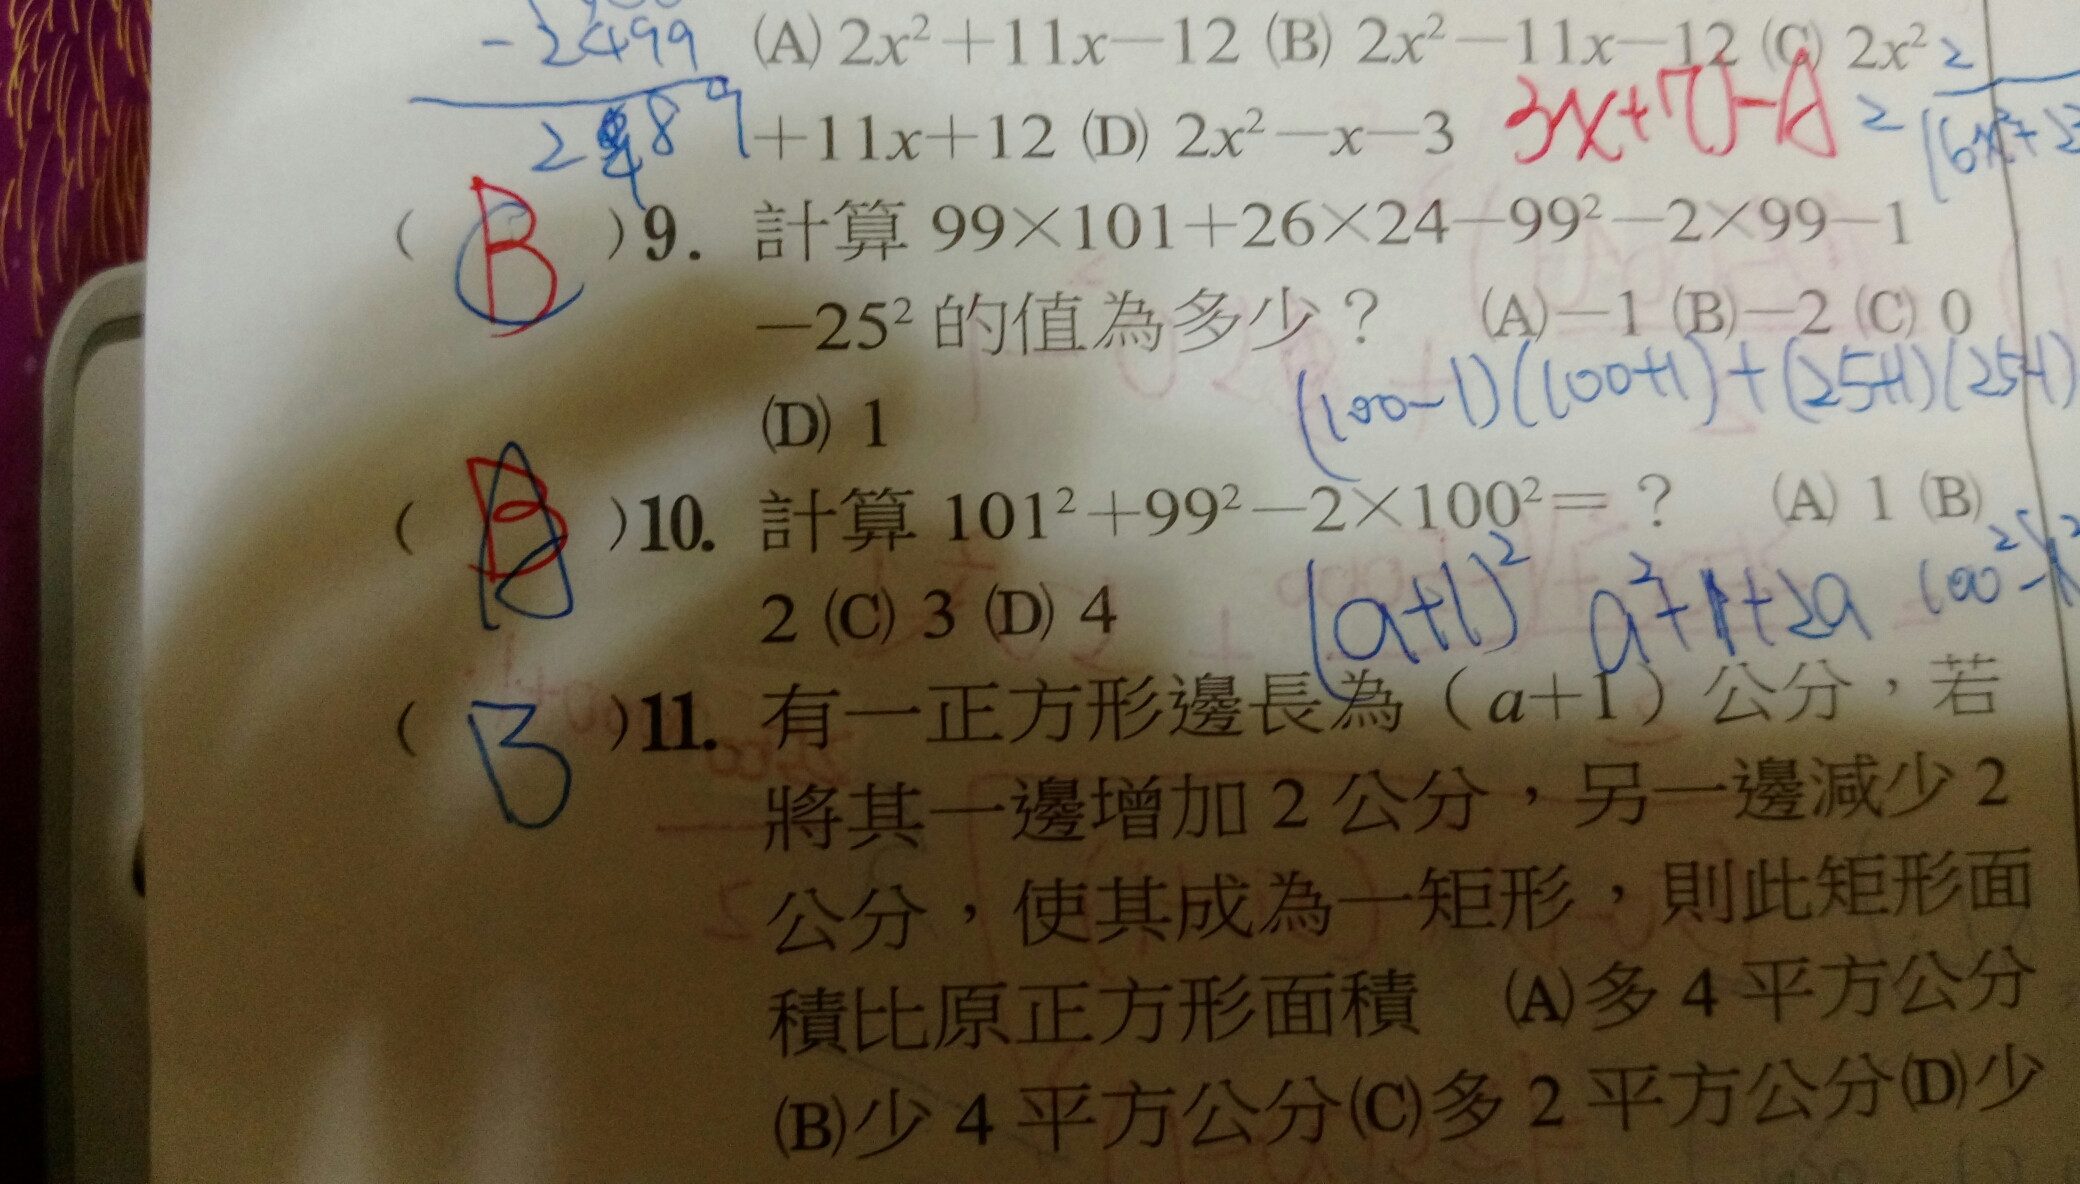 -2499 (A) 2x²+11x-12 (B) 2x²-11x-12 (C) 2x² 2
2489 +11x+12 (D) 2x²-x-3 3x+7)-A 2
( B )9. 計算 99×101+26×24-99²-2×99-1
-25² 的值為多少? (A)-1 (B)-2 (C) 0
(D) 1 (100-1)(100+1)+(25+1)(25-1)
( B )10. 計算 101²+99²-2×100²=? (A) 1 (B)
2 (C) 3 (D) 4 (a+1)² a²+1+2a 100²-1²
( B )11. 有一正方形邊長為(a+1)公分,若
將其一邊增加 2 公分,另一邊減少 2
公分,使其成為一矩形,則此矩形面
積比原正方形面積 (A)多 4 平方公分
(B)少 4 平方公分(C)多 2 平方公分(D)少